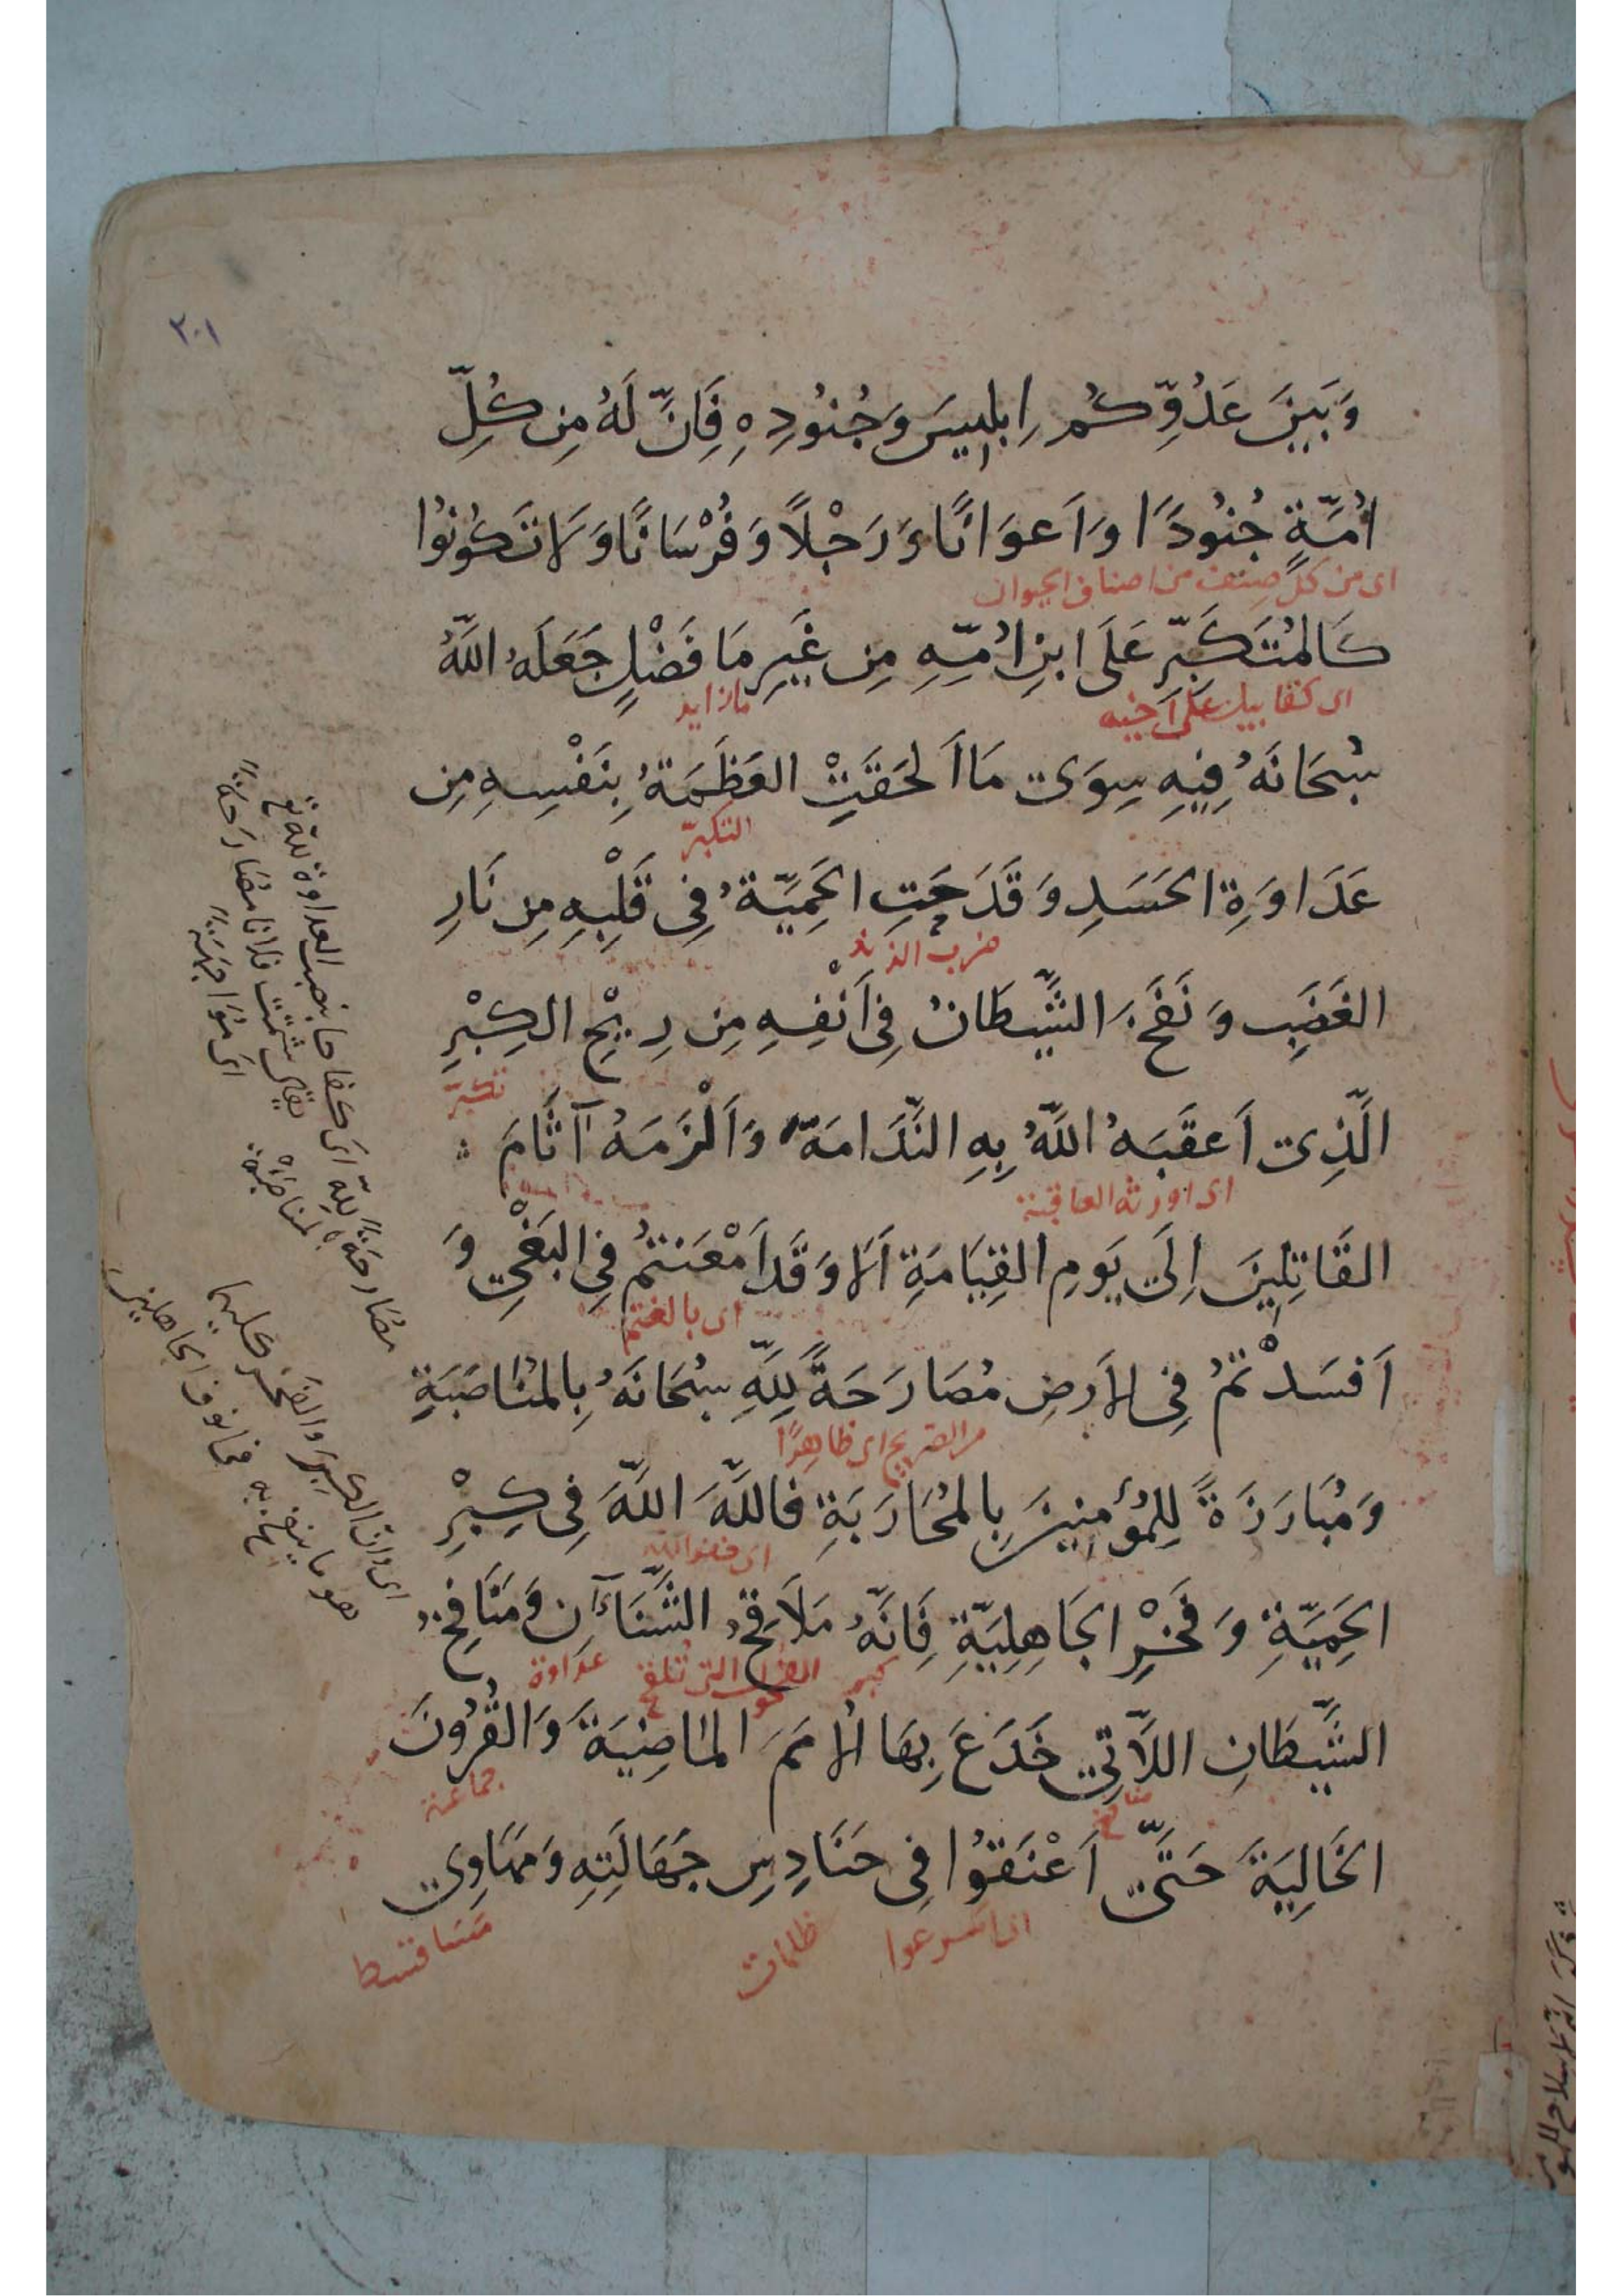 ٢٠١
وَبَيْنَ عَدُوِّكُم اِبلِيسَ وَجُنُودِهِ فَاِنَّ لَهُ مِن كُلِّ
اُمَّةٍ جُنُودًا وَاَعوَانًا وَرَجْلاً وَفُرْسَانًا وَلَا تَكُونُوا
اى من كل صنف من اصناف الحيوان
كَالمُتَكَبِّرِ عَلَى ابنِ اُمِّهِ مِن غَيرِ مَا فَضْلٍ جَعَلَهُ اللَّهُ
اى كقابيل على اخيه
ما زايد
سُبْحَانَهُ فِيهِ سِوَى مَا اَلحَقَتِ العَظَمَةُ بِنَفْسِهِ مِن
التكبّر
عَدَاوَةِ الحَسَدِ وَقَدَحَتِ الحَمِيَّةُ فِى قَلْبِهِ مِن نَارِ
ضرب الزند
الغَضَبِ وَنَفَخَ الشَّيطَانُ فِى اَنْفِهِ مِن رِيْحِ الكِبْرِ
تكبّر
الَّذِى اَعقَبَهُ اللَّهُ بِهِ النَّدَامَةَ وَاَلْزَمَهُ آثَامَ
اى اورثه العاقبة
القَاتِلِينَ اِلَى يَومِ القِيَامَةِ اَلَا وَقَد اَمْعَنتُمْ فِى البَغْىِ وَ
اى بالغتم
اَفسَدْتُمْ فِى الاَرضِ مُصَارَحَةً لِلَّهِ سُبْحَانَهُ بِالمُنَاصَبَةِ
من التصريح اى ظاهرًا
وَمُبَارَزَةً لِلمُؤمِنِينَ بِالمُحَارَبَةِ فَاللَّهَ اللَّهَ فِى كِبْرِ
اى خفوا الله
الحَمِيَّةِ وَفَخْرِ الجَاهِلِيَّةِ فَاِنَّهُ مَلَاقِحُ الشَّنَآنِ وَمَنَافِخُ
كبر
الفحول التى تلقح
عداوة
الشَّيطَانِ اللَّاتِى خَدَعَ بِهَا الاُمَمَ المَاضِيَةَ وَالقُرُونَ
منافخ
جماعة
الخَالِيَةَ حَتَّى اَعْنَقُوا فِى حَنَادِسِ جَهَالَتِهِ وَمَهَاوِى
اى اسرعوا
ظلمات
مصارحة لله اى كفاحا بنصب العداوة لله تع
يقال شتمت فلانا مصارحة
اى مواجهة
المناصبة
اى وان الكبر والفخر
هو ما ينفخ به